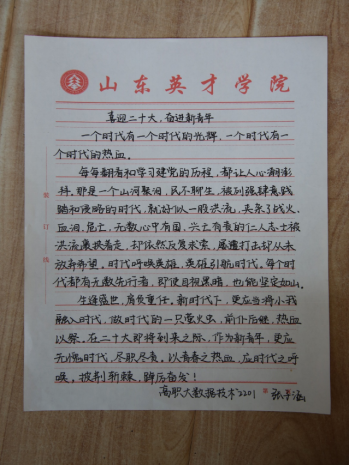 山东英才学院
喜迎二十大，奋进新青年
一个时代有一个时代的光辉，一个时代有一
个时代的热血。
每每翻看和学习建党的历程，都让人心潮澎
拜。那是一个山河聚泪，民不聊生，被列强肆意践
踏和侵略的时代，就好似一股洪流，夹杂了战火，
血泪，危亡，无数心中有国，兴亡有责的仁人志士被
洪流裹挟着走，却依然反复求索，屡遭打击却从未
放弃希望。时代呼唤英雄，英雄引航时代。每个时
代都有无数先行者，即使目视黑暗，也能坚定如山。
生逢盛世，肩负重任。新时代下，更应当将小我
融入时代，做时代的一只萤火虫，前仆后继，热血
以祭。在二十大即将到来之际，作为新青年，更应
无愧时代，尽职尽责。以青春之热血，应时代之呼
唤。披荆斩棘，踔厉奋发！
高职大数据技术2201
装
订
线